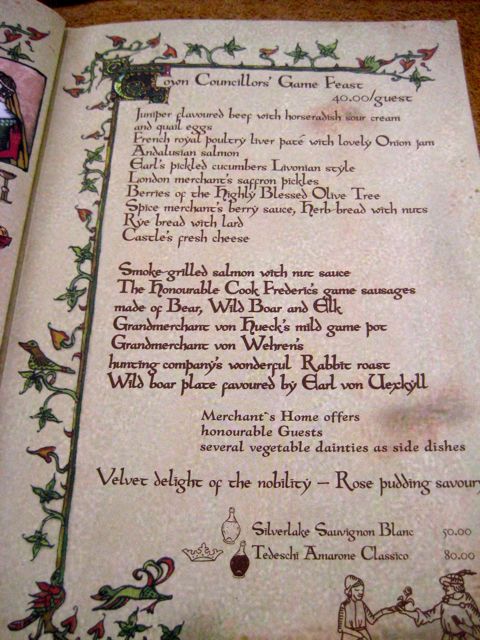 Town Councillors' Game Feast
40.00/guest
Juniper flavoured beef with horseradish sour cream
and quail eggs
French royal poultry liver paté with lovely Onion jam
Andalusian salmon
Earl's pickled cucumbers Livonian style
London merchant's saffron pickles
Berries of the Highly Blessed Olive Tree
Spice merchant's berry sauce, Herb bread with nuts
Rye bread with lard
Castle's fresh cheese
Smoke-grilled salmon with nut sauce
The Honourable Cook Frederic's game sausages
made of Bear, Wild Boar and Elk
Grandmerchant von Hueck's mild game pot
Grandmerchant von Wehren's
hunting company's wonderful Rabbit roast
Wild boar plate favoured by Earl von Uexkyll
Merchant's Home offers
honourable Guests
several vegetable dainties as side dishes
Velvet delight of the nobility – Rose pudding savoury
Silverlake Sauvignon Blanc 50.00
Tedeschi Amarone Classico 80.00